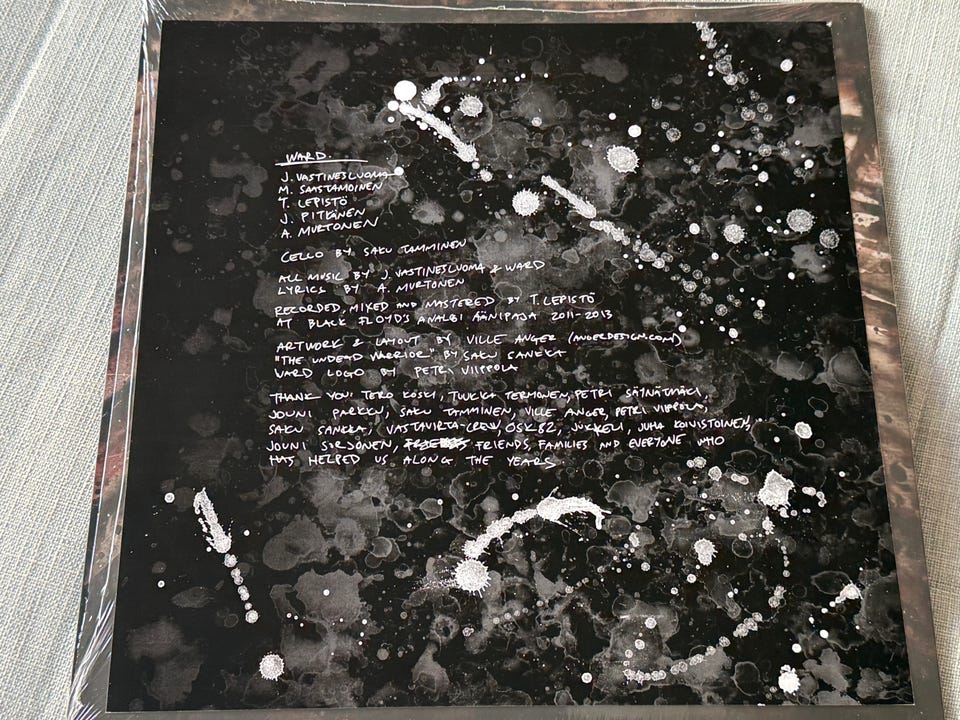 WARD.
J. VASTINESLUOMA
M. SAASTAMOINEN
T. LEPISTÖ
J. PITKÄNEN
A. MURTONEN
CELLO BY SAKU TAMMINEN
ALL MUSIC BY J. VASTINESLUOMA & WARD
LYRICS BY A. MURTONEN
RECORDED, MIXED AND MASTERED BY T. LEPISTÖ
AT BLACK FLOYD'S ANALBI ÄÄNIPAJA 2011-2013
ARTWORK & LAYOUT BY VILLE ANGER (ANGERDESIGN.COM)
"THE UNDEAD WARRIOR" BY SAKU SANKKA
WARD LOGO BY PETRI VIIPPOLA
THANK YOU: TERO KOSKI, TUKKA TERMONEN, PETRI SÄYNÄTMÄKI,
JOUNI PARKKU, SAKU TAMMINEN, VILLE ANGER, PETRI VIIPPOLA,
SAKU SANKKA, VASTAVIRTA-CREW, OSK82, JUKKELI, JUHA KOIVISTOINEN,
JOUNI SORJONEN, FRIENDS, FAMILIES AND EVERYONE WHO
HAS HELPED US ALONG THE YEARS.